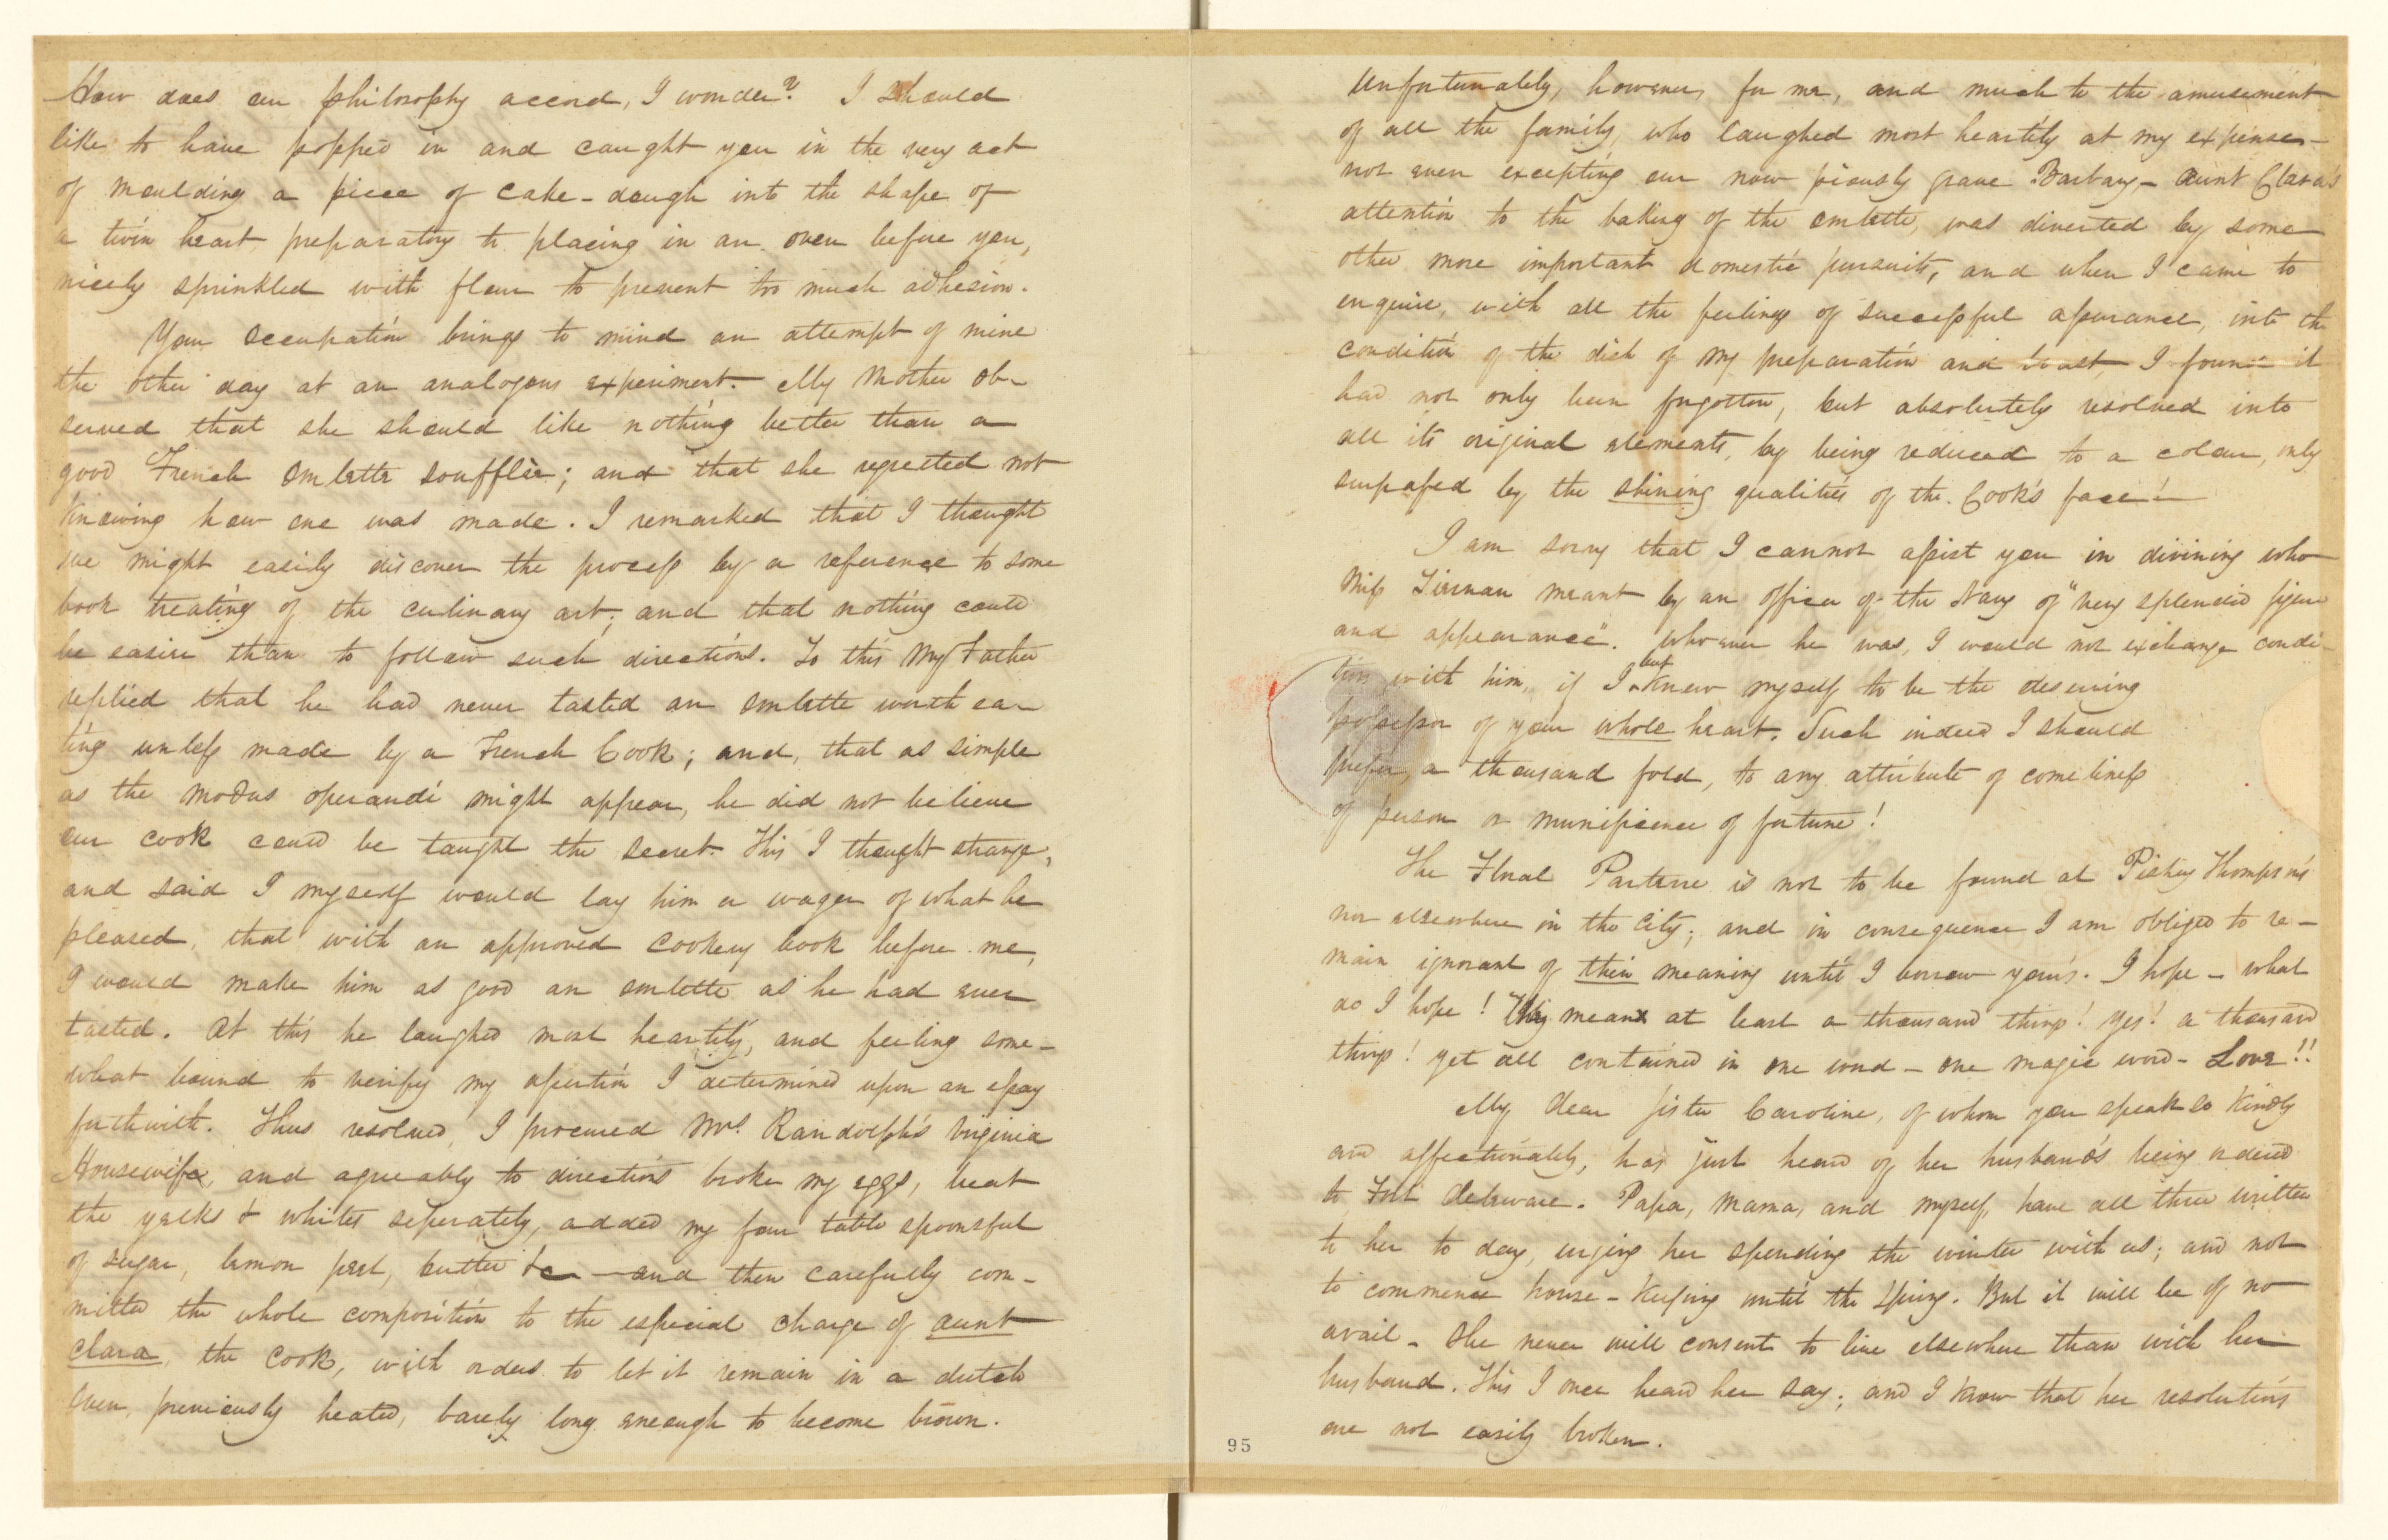 How does our philosophy accord, I wonder? I should
like to have popped in and caught you in the very act
of moulding a piece of cake-dough into the shape of
a twin heart preparatory to placing in an oven before you,
nicely sprinkled with flour to prevent too much adhesion.
Your occupation brings to mind an attempt of mine
the other day at an analogous experiment. My Mother ob-
served that she should like nothing better than a
good French omlette soufflée; and that she regretted not
knowing how one was made. I remarked that I thought
we might easily discover the process by a reference to some
book treating of the culinary art; and that nothing could
be easier than to follow such directions. To this My Father
replied that he had never tasted an omlette worth ea-
ting unless made by a French Cook; and, that as simple
as the modus operandi might appear, he did not believe
our cook could be taught the secret. This I thought strange,
and said I myself would lay him a wager of what he
pleased, that with an approved cookery book before me,
I would make him as good an omlette as he had ever
tasted. At this he laughed most heartily, and feeling some-
what bound to verify my assertion I determined upon an essay
forthwith. Thus resolved, I procured Mrs. Randolph's Virginia
Housewife, and agreeably to directions broke my eggs, beat
the yelks & whites seperately, added my four table spoonsful
of sugar, lemon peel, butter &c — and then carefully com-
mitted the whole composition to the especial charge of aunt
clara, the cook, with orders to let it remain in a dutch
oven, previously heated, barely long eneough to become brown.
Unfortunately, however, for me, and much to the amusement
of all the family, who laughed most heartily at my expense-
not even excepting our now piously grave Barbary- aunt Clara's
attention to the baking of the omlette, was diverted by some
other more important domestic pursuits, and when I came to
enquire, with all the feelings of successful assurance, into the
condition of the dish of my preparation and boast, I found it
had not only been forgotten, but absolutely resolved into
all its original elements, by being reduced to a colour, only
surpassed by the shining qualities of the Cook's face!
I am sorry that I cannot assist you in divining who
Miss Tiernan meant by an officer of the Navy of "very splendid figure
and appearance". Whoever he was, I would not exchange condi-
tions with him, if I but knew myself to be the deserving
possessor of your whole heart. Such indeed I should
prefer, a thousand fold, to any attribute of comeliness
of person or munificence of fortune!
The Floral Parterre is not to be found at Pishey Thompson's
nor elsewhere in the City; and in consequence I am obliged to re-
main ignorant of their meaning until I borrow your's. I hope - what
do I hope! They mean at least a thousand things! Yes! a thousand
things! yet all contained in one word - one magic word - Love!!
My dear sister Caroline, of whom you speak so kindly
and affectionately, has just heard of her husband's being ordered
to Fort Delaware. Papa, Mama, and myself, have all three written
to her to day, urging her spending the winter with us; and not
to commence house-keeping until the Spring. But it will be of no
avail - She never will consent to live elsewhere than with her
husband. This I once heard her say; and I know that her resolutions
are not easily broken.
95